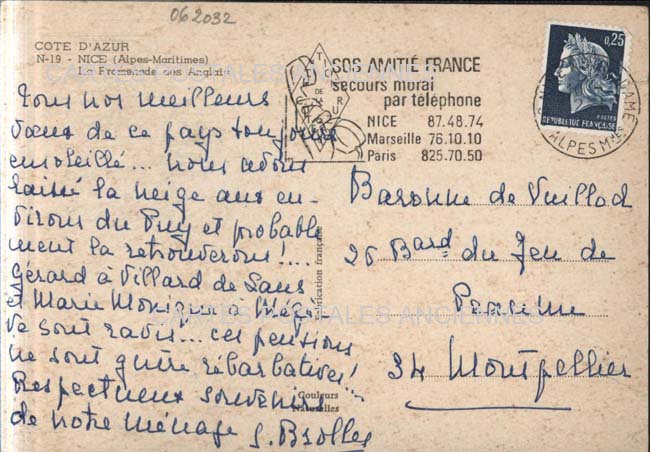 062032
COTE D'AZUR
N-19 - NICE (Alpes-Maritimes)
La Promenade des Anglais
Tous nos meilleurs
vœux de ce pays toujours
ensoleillé... nous avons
laissé la neige aux en-
virons du Puy et probable
ment la retrouverons !...
Gérard à Villard de Lans
et Marie Monique à Mégève
Ve sont ravis... ces pensions
ne sont guère rébarbatives !
Respectueux souvenirs
de notre ménage
SOS AMITIÉ FRANCE
secours moral
par téléphone
NICE 87.48.74
Marseille 76.10.10
Paris 825.70.50
0,25
POSTES
REPUBLIQUE FRANÇAISE
ALPES Mmes
Baronne de
26 Bard du Jeu de
34 Montpellier
Fabrication française
Couleurs
Naturelles
CARTES POSTALES ANCIENNES